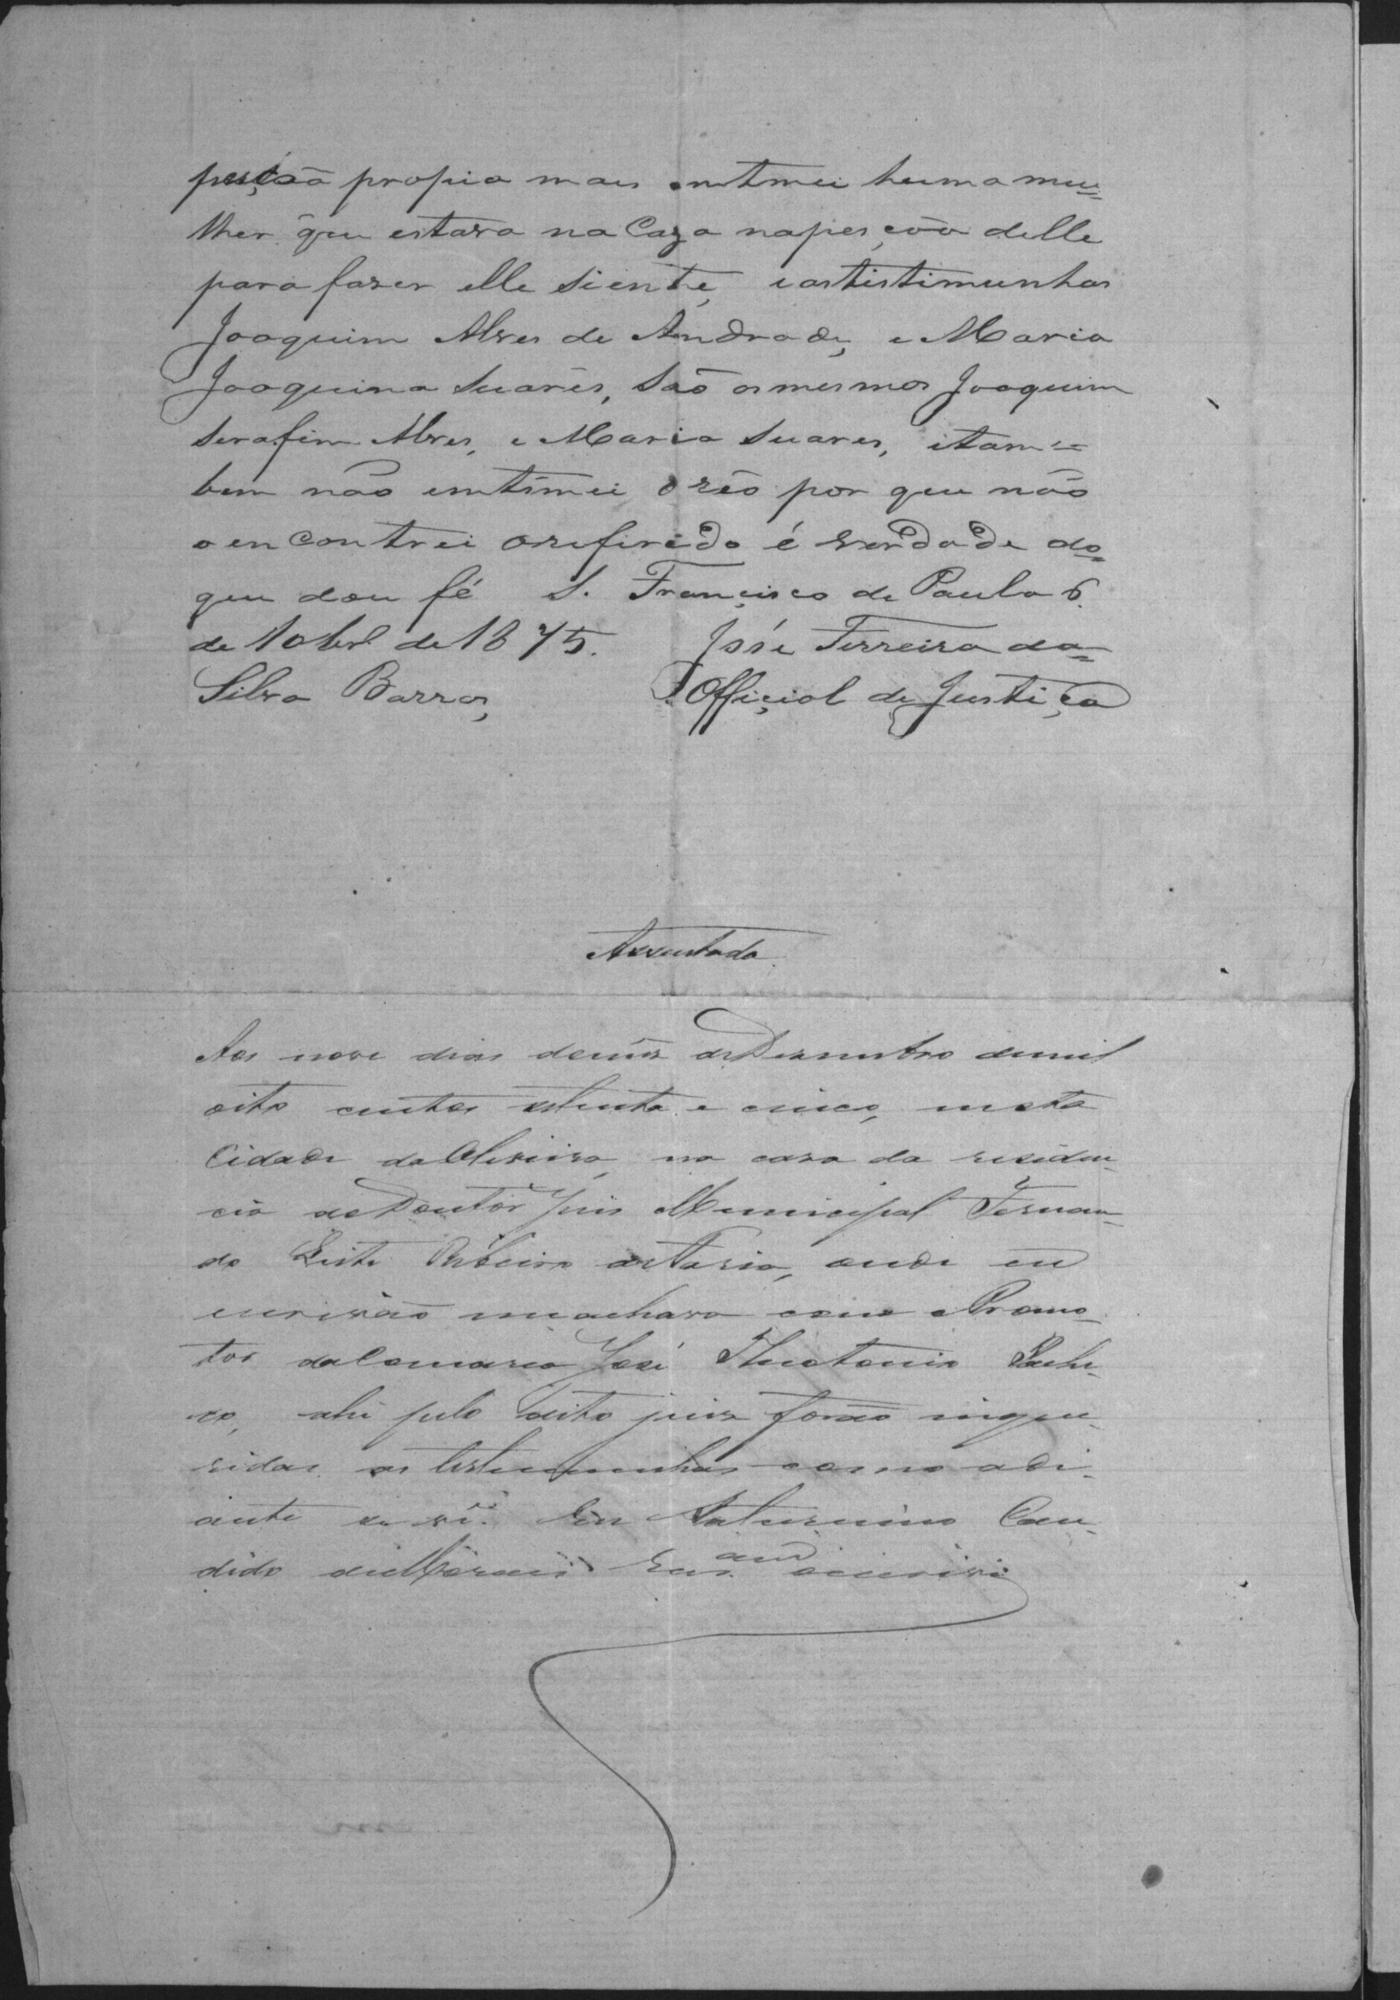 peição propio mais emtimei huma mu=
lher que estava na Caza napesçõa delle
para fazer elle siente, e astistimunhas
Joaquim Alves de Andrade, e Maria
Joaquina Suares, São os mesmos Joaquim
Serafim Alves, e Maria Suares, itam=
bem não emtimei o réo por que não
o encontrei orefirido é verdade do=
que dou fé S. Francisco de Paula 6
de 10br de 1875. José Ferreira da=
Silva Barros, Official de Justiça
Assentada
Aos nove dias do mez de Dezembro de mil
oito centos setenta e cinco, nesta
Cidade da Oliveira, na casa da residen-
cia do Doutor Juis Municipal Fernan-
do Leite Ribeiro de Faria, onde eu
escrivão me achava com o Promo-
tor da Comarca José Theotonio Pache-
co, ahi pelo dito juiz forão inque-
ridas as testemunhas como adi-
ante se vê. Eu Saturnino Can-
dido de Moraes escrivi